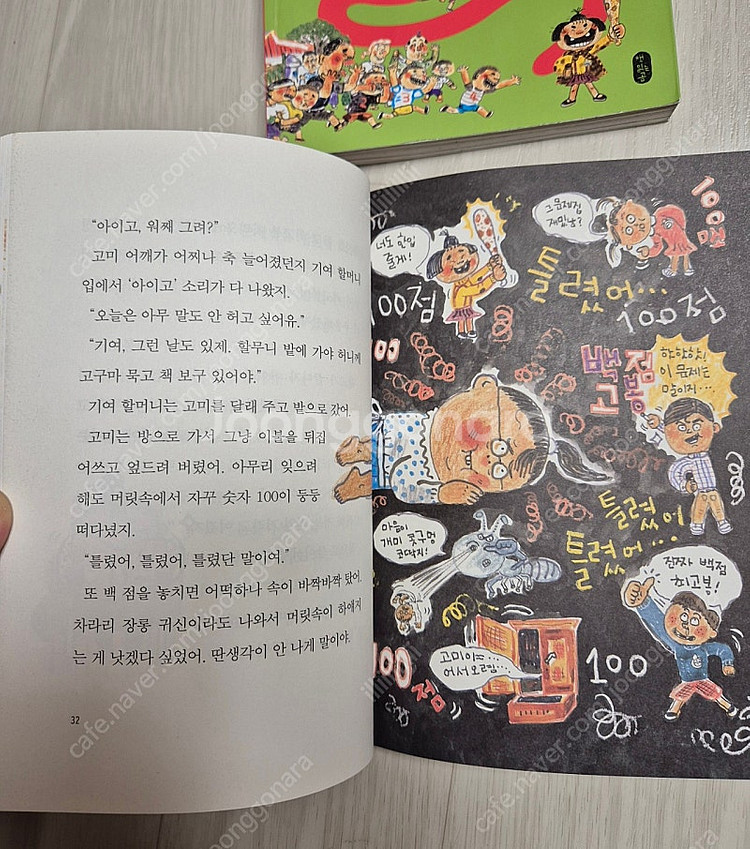 책
읽는
곰
"아이고, 워째 그려?"
고미 어깨가 어찌나 축 늘어졌던지 기여 할머니
입에서 '아이고' 소리가 다 나왔지.
"오늘은 아무 말도 안 허고 싶어유."
"기여, 그런 날도 있제. 할무니 밭에 가야 허니께
고구마 묵고 책 보구 있어야."
기여 할머니는 고미를 달래 주고 밭으로 갔어.
고미는 방으로 가서 그냥 이불을 뒤집
어쓰고 엎드려 버렸어. 아무리 잊으려
해도 머릿속에서 자꾸 숫자 100이 둥둥
떠다녔지.
"틀렸어, 틀렸어, 틀렸단 말이여."
또 백 점을 놓치면 어떡하나 속이 바짝바짝 탔어.
차라리 장롱 귀신이라도 나와서 머릿속이 하얘지
는 게 낫겠다 싶었어. 딴생각이 안 나게 말이야.
32
너도 한입
줄게!
100점
그 문제집
재밌냥?
100점
틀렸어...
100점
100
백점
고봉
하하하!
이 문제는
말이지...
틀렸어
틀렸어...
마음이
개미 콧구멍
코딱지!
진짜 백점
최고봉!
고미야...
어서 오르렴...
100
점
100
cafe.naver.com/joonggonara
joonggonara